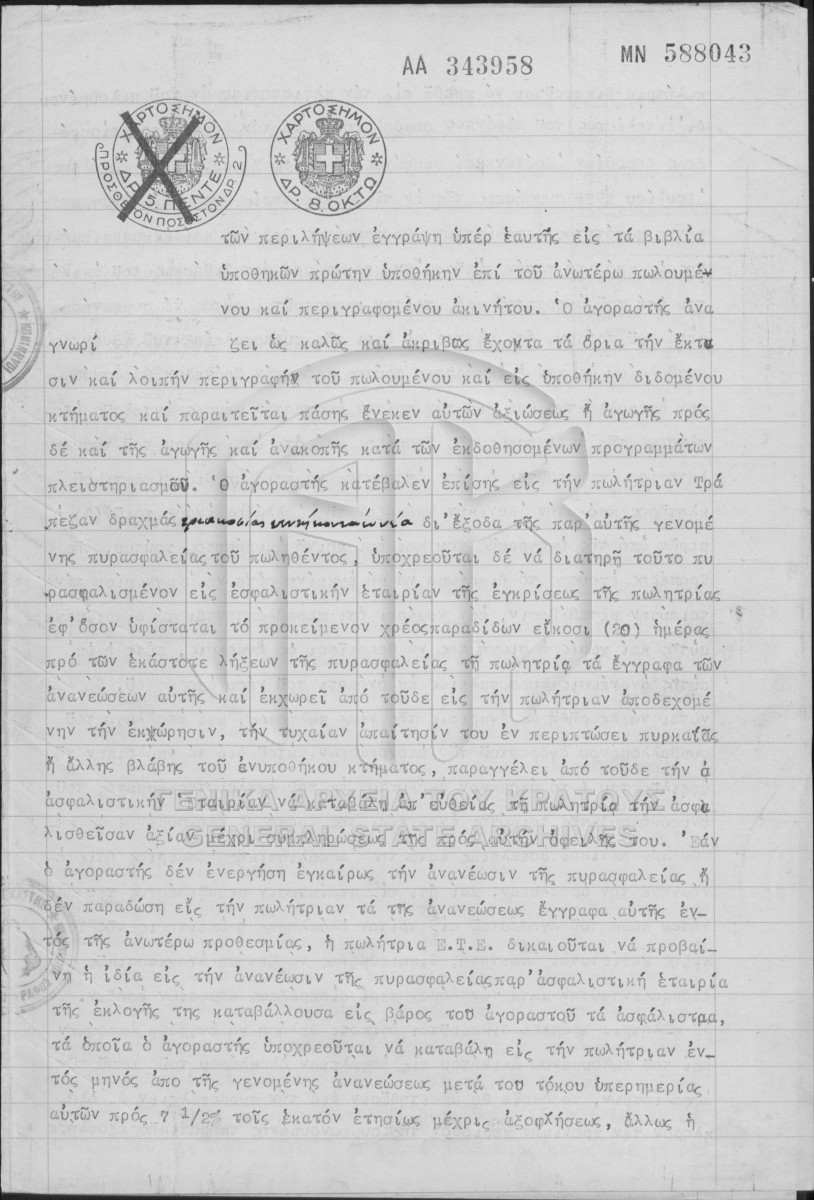 ΑΑ 343958
ΜΝ 588043
ΧΑΡΤΟΣΗΜΟΝ
ΔΡ. 5. ΠΕΝΤΕ
ΠΡΟΣΘΕΤΟΝ ΠΟΣΟΣΤΟΝ ΔΡ. 2.
ΧΑΡΤΟΣΗΜΟΝ
ΔΡ. 8. ΟΚΤΩ
τῶν περιλήψεων ἐγγράψη ὑπέρ ἑαυτῆς εἰς τά βιβλία
ὑποθηκῶν πρώτην ὑποθήκην ἐπί τοῦ ἀνωτέρω πωλουμέ-
νου καί περιγραφομένου ἀκινήτου. Ὁ ἀγοραστής ἀνα
γνωρί ζει ὡς καλῶς καί ἀκριβῶς ἔχοντα τά ὅρια τήν ἔκτα
σιν καί λοιπήν περιγραφήν τοῦ πωλουμένου καί εἰς ὑποθήκην διδομένου
κτήματος καί παραιτεῖται πάσης ἕνεκεν αὐτῶν ἀξιώσεως ἤ ἀγωγῆς πρός
δέ καί τῆς ἀγωγῆς καί ἀνακοπῆς κατά τῶν ἐκδοθησομένων προγραμμάτων
πλειστηριασμοῦ. Ὁ ἀγοραστής κατέβαλεν ἐπίσης εἰς τήν πωλήτριαν Τρά
πεζαν δραχμάς τριακοσίας πενήκοντα ἐννέα δι'ἔξοδα τῆς παρ'αὐτῆς γενομέ
νης πυρασφαλείας τοῦ πωληθέντος, ὑποχρεοῦται δέ νά διατηρῇ τοῦτο πυ
ρασφαλισμένον εἰς ἐσφαλιστικήν ἑταιρίαν τῆς ἐγκρίσεως τῆς πωλητρίας
ἐφ'ὅσον ὑφίσταται τό προκείμενον χρέος παραδίδων εἴκοσι (20) ἡμέρας
πρό τῶν ἑκάστοτε λήξεων τῆς πυρασφαλείας τῇ πωλητρίᾳ τά ἔγγραφα τῶν
ἀνανεώσεων αὐτῆς καί ἐκχωρεῖ ἀπό τοῦδε εἰς τήν πωλήτριαν ἀποδεχομέ
νην τήν ἐκχώρησιν, τήν τυχαίαν ἀπαίτησίν του ἐν περιπτώσει πυρκαϊᾶς
ἤ ἄλλης βλάβης τοῦ ἐνυποθήκου κτήματος, παραγγέλει ἀπό τοῦδε τήν ἀ
ἀσφαλιστικήν Ἑταιρίαν νά καταβάλη ἀπ'εὐθείας τῇ πωλητρίᾳ τήν ἀσφα
λισθεῖσαν ἀξίαν μέχρι συμπληρώσεως τῆς πρός αὐτήν ὀφειλῆς του. Ἐάν
ὁ ἀγοραστής δέν ἐνεργήση ἐγκαίρως τήν ἀνανέωσιν τῆς πυρασφαλείας ἤ
δέν παραδώση εἰς τήν πωλήτριαν τά τῆς ἀνανεώσεως ἔγγραφα αὐτῆς ἐν-
τός τῆς ἀνωτέρω προθεσμίας, ἡ πωλήτρια Ε.Τ.Ε. δικαιοῦται νά προβαί-
νη ἡ ἰδία εἰς τήν ἀνανέωσιν τῆς πυρασφαλείας παρ'ἀσφαλιστική ἑταιρία
τῆς ἐκλογῆς της καταβάλλουσα εἰς βάρος τοῦ ἀγοραστοῦ τά ἀσφάλιστρα,
τά ὁποῖα ὁ ἀγοραστής ὑποχρεοῦται νά καταβάλη εἰς τήν πωλήτριαν ἐν-
τός μηνός ἀπο τῆς γενομένης ἀνανεώσεως μετά του τόκου ὑπερημερίας
αὐτῶν πρός 7 1/2% τοῖς ἑκατόν ἐτησίως μέχρις ἀξοφλήσεως, ἄλλως ἡ
ΓΕΝΙΚΑ ΑΡΧΕΙΑ ΤΟΥ ΚΡΑΤΟΥΣ
GENERAL STATE ARCHIVES